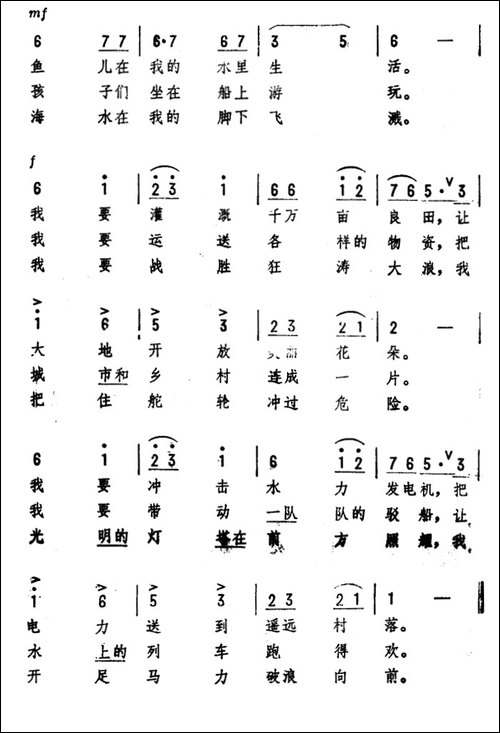 mf
6 7 7 | 6·7 6 7 | 3 5 | 6 —
鱼 儿在 我的 水里 生 活。
孩 子们 坐在 船上 游 玩。
海 水在 我的 脚下 飞 溅。
f
6 i | 2̇ 3̇ i | 6 6 i 2̇ | 7 6 5· V 3
我 要 灌 溉 千万 亩 良 田,让
我 要 运 送 各 样的 物 资,把
我 要 战 胜 狂 涛 大 浪,我
> > > >
i 6 | 5 3 | 2 3 2 1 | 2 —
大 地 开 放 花 朵。
城 市和 乡 村 连成 一 片。
把 住 舵 轮 冲过 危 险。
6 i | 2̇ 3̇ i | 6 i 2̇ | 7 6 5· V 3
我 要 冲 击 水 力 发电机,把
我 要 带 动 一队 队的 驳 船,让
光 明的 灯 塔在 前 方 照 耀,我
> > > >
i 6 | 5 3 | 2 3 2 1 | 1 —
电 力 送 到 遥远 村 落。
水 上的 列 车 跑 得 欢。
开 足 马 力 破浪 向 前。